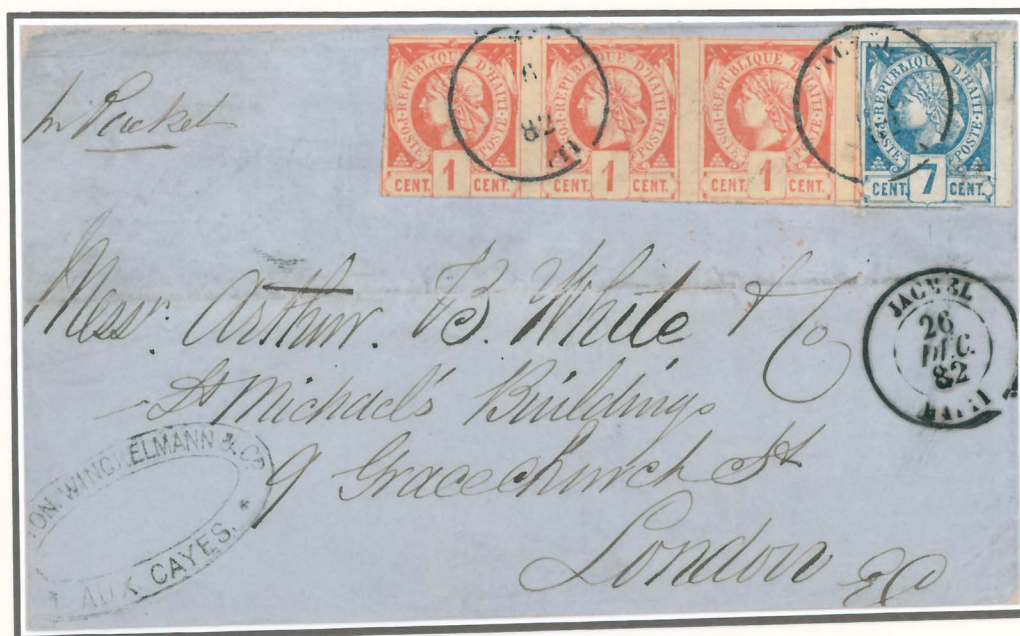 pr Packet
REPUBLIQUE D'HAITI
POSTE POSTE
CENT. 1 CENT.
REPUBLIQUE D'HAITI
POSTE POSTE
CENT. 1 CENT.
REPUBLIQUE D'HAITI
POSTE POSTE
CENT. 1 CENT.
REPUBLIQUE D'HAITI
POSTE POSTE
CENT. 7 CENT.
82
JACMEL
Messrs. Arthur. B. White & Co
St Michael's Buildings
9 Gracechurch St
London EC
JACMEL
26
DEC.
82
HAITI
ON. WINCKELMANN & Co
AUX CAYES.